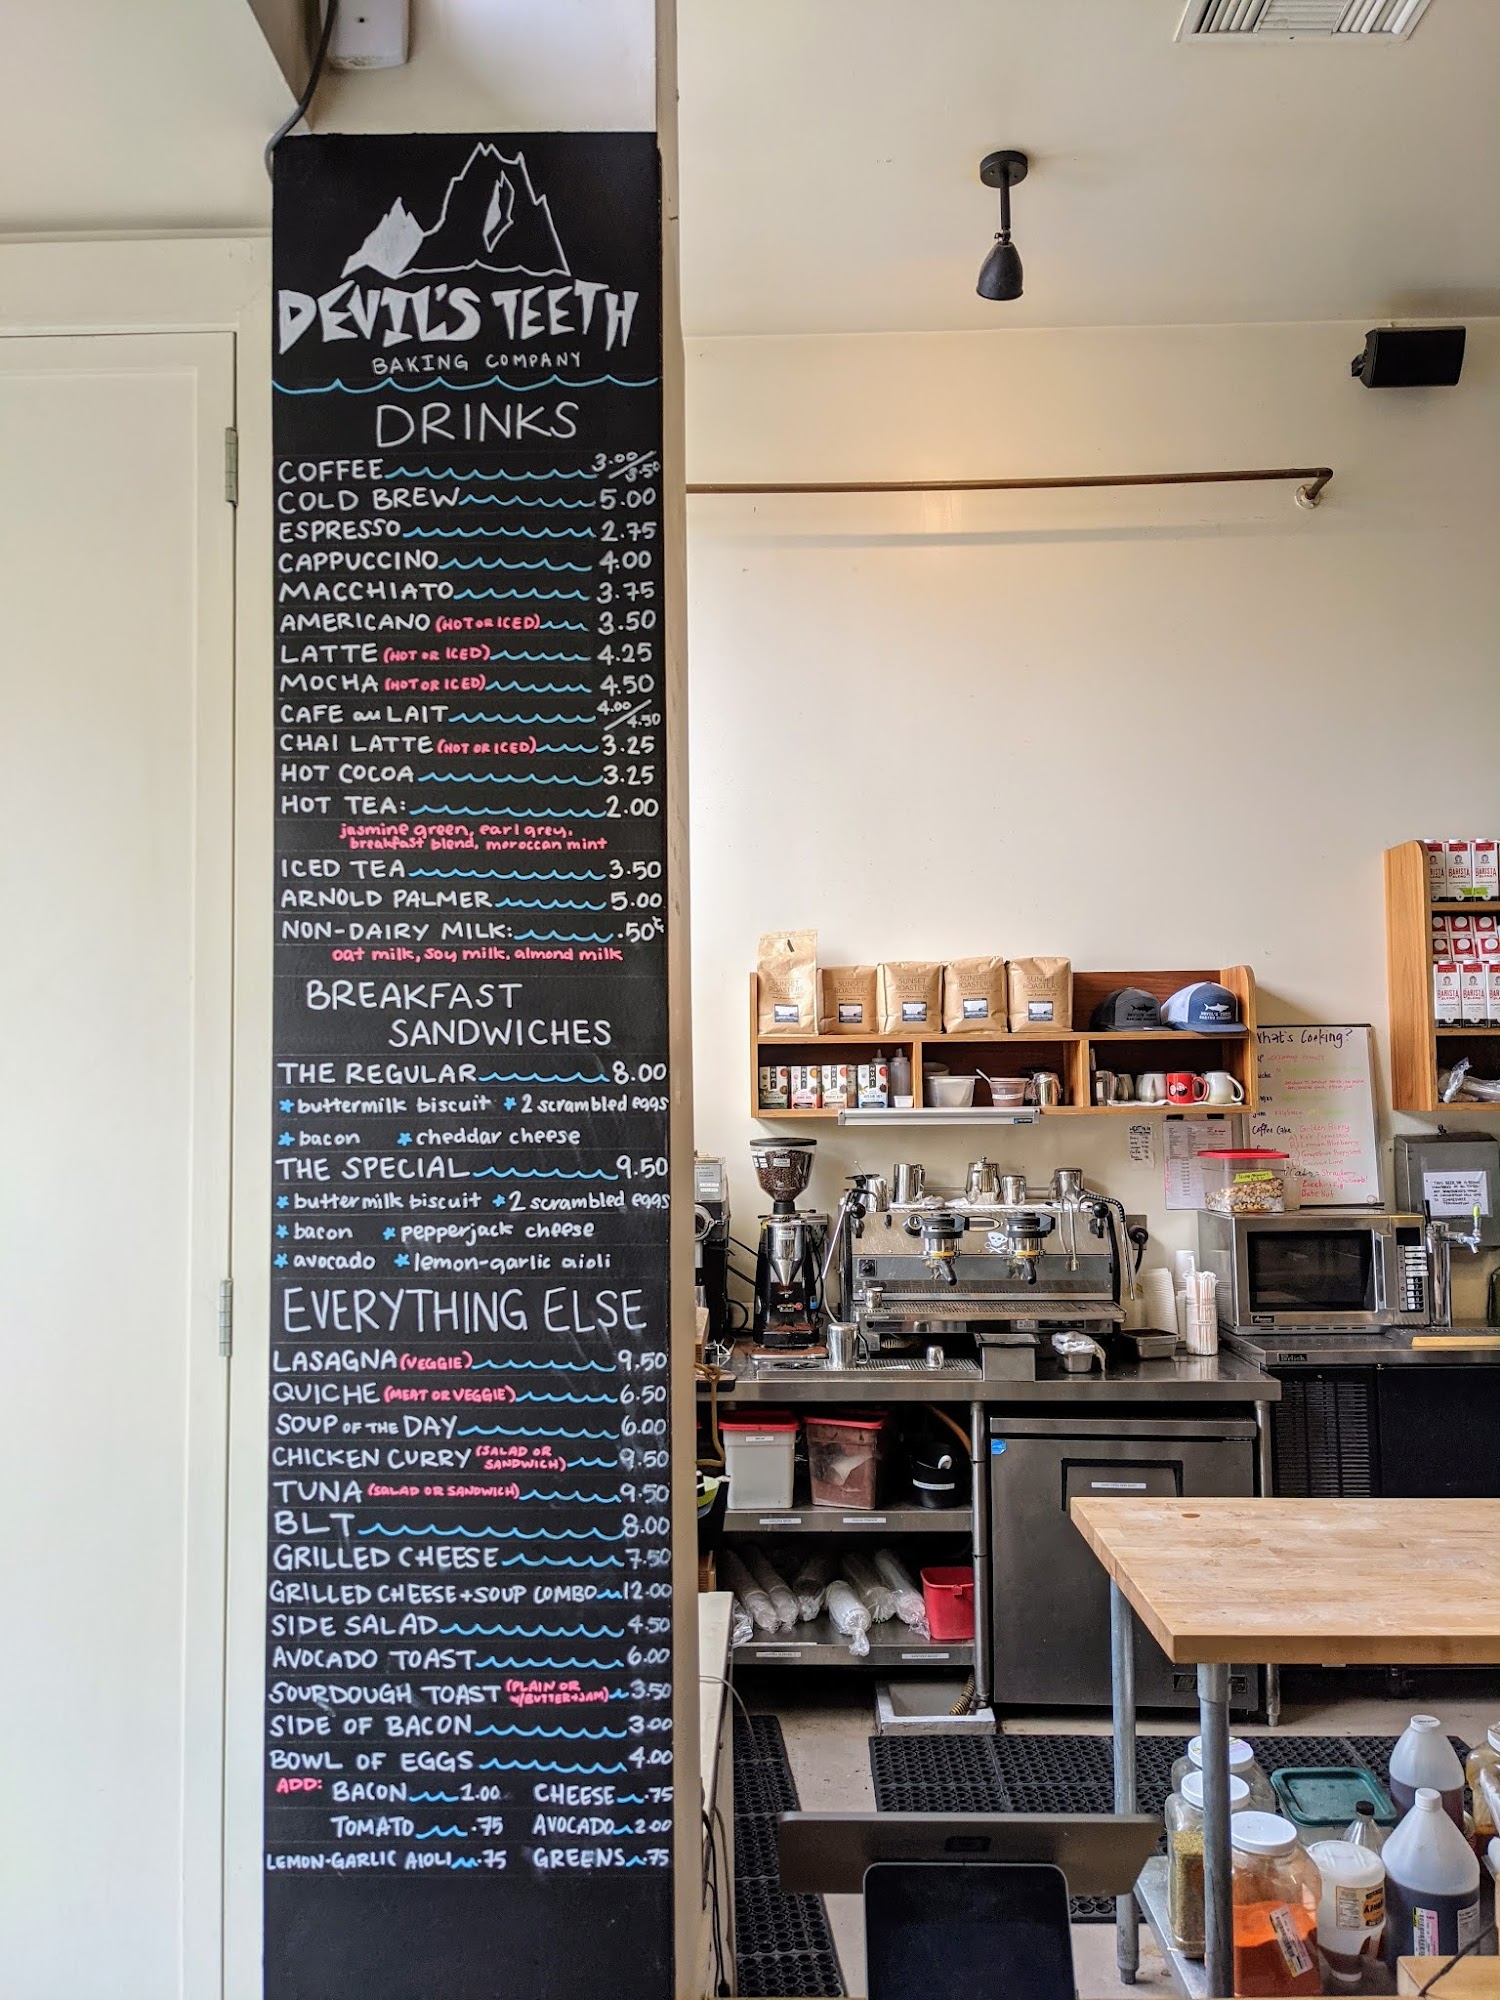 DEVIL'S TEETH
BAKING COMPANY
DRINKS
COFFEE 3.00/3.50
COLD BREW 5.00
ESPRESSO 2.75
CAPPUCCINO 4.00
MACCHIATO 3.75
AMERICANO (HOT OR ICED) 3.50
LATTE (HOT OR ICED) 4.25
MOCHA (HOT OR ICED) 4.50
CAFE au LAIT 4.00/4.50
CHAI LATTE (HOT OR ICED) 3.25
HOT COCOA 3.25
HOT TEA: 2.00
jasmine green, earl grey,
breakfast blend, moroccan mint
ICED TEA 3.50
ARNOLD PALMER 5.00
NON-DAIRY MILK: .50¢
oat milk, soy milk, almond milk
BREAKFAST
SANDWICHES
THE REGULAR 8.00
* buttermilk biscuit * 2 scrambled eggs
* bacon * cheddar cheese
THE SPECIAL 9.50
* buttermilk biscuit * 2 scrambled eggs
* bacon * pepperjack cheese
* avocado * lemon-garlic aioli
EVERYTHING ELSE
LASAGNA (VEGGIE) 9.50
QUICHE (MEAT OR VEGGIE) 6.50
SOUP OF THE DAY 6.00
CHICKEN CURRY (SALAD OR SANDWICH) 9.50
TUNA (SALAD OR SANDWICH) 9.50
BLT 8.00
GRILLED CHEESE 7.50
GRILLED CHEESE + SOUP COMBO 12.00
SIDE SALAD 4.50
AVOCADO TOAST 6.00
SOURDOUGH TOAST (PLAIN OR W/BUTTER+JAM) 3.50
SIDE OF BACON 3.00
BOWL OF EGGS 4.00
ADD: BACON 2.00 CHEESE .75
TOMATO .75 AVOCADO 2.00
LEMON-GARLIC AIOLI .75 GREENS .75
SUNSET ROASTERS
SUNSET ROASTERS
SUNSET ROASTERS
SUNSET ROASTERS
NUMI
BARISTA
BARISTA
What's Cooking?
Coffee Cake
Golden Berry